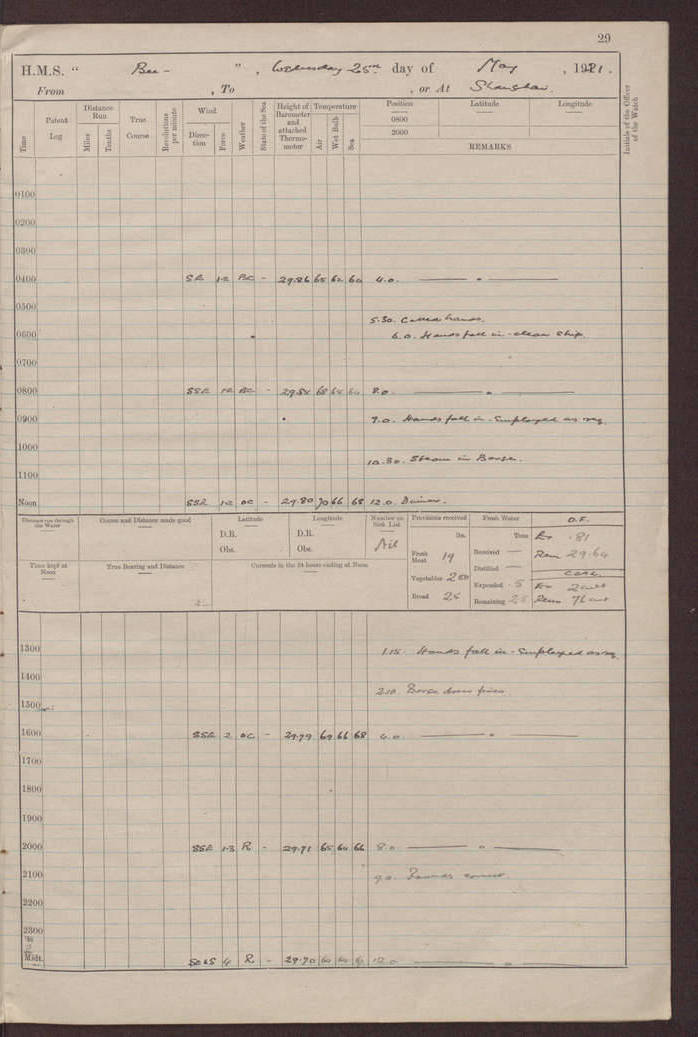 29
H.M.S. " Bee - ", Wednesday 25th day of May, 1921.
From , To , or At Shanghai.
Time
Patent Log
Distance Run
Miles Tenths
True Course
Revolutions per minute
Wind
Direction Force
Weather
State of the Sea
Height of Barometer and attached Thermometer
Temperature
Air Wet Bulb Sea
Position Latitude Longitude
0800
2000
REMARKS
Initials of the Officer of the Watch
0100
0200
0300
0400 SE 1-2 BC - 29.86 65 62 60 4.0. "
0500
5.30. Called hands.
0600 6.0. Hands fall in - clean ship.
0700
0800 SSE 1-2 BC - 29.84 68 64 8.0. "
0900 9.0. Hands fall in. Employed as req.
1000
10.30. Steam in Barge.
1100
Noon SSE 1-2 OC - 29.80 70 66 68 12.0 Dinner.
Distance run through the Water
Course and Distance made good
Latitude
D.R.
Obs.
Longitude
D.R.
Obs.
Number on Sick List
Nil
Provisions received
lbs.
Fresh Meat 19
Vegetables
Bread 25
Fresh Water
Tons
Received —
Distilled —
Expended .5
Remaining 25
O.F.
Ex .81
Rem 29.64
Coal
Ex 2 cwt
Rem 76 cwt
Time kept at Noon
True Bearing and Distance
Currents in the 24 hours ending at Noon
1300 1.15. Hands fall in - Employed as req.
1400
2.10. Barge down fires
1500
1600 SSE 2 OC - 29.79 69 66 68 4.0. "
1700
1800
1900
2000 SSE 1-3 R - 29.71 65 64 66 8.0 "
2100 9.0. Rounds correct.
2200
2300
Midt. 4 R - 29.70 12.0 "